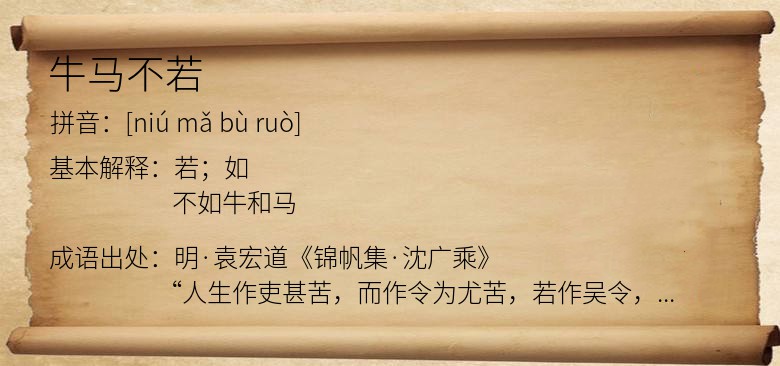 牛马不若
拼音：[niú mǎ bù ruò]
基本解释：若；如
不如牛和马
成语出处：明·袁宏道《锦帆集·沈广乘》
“人生作吏甚苦，而作令为尤苦，若作吴令，...